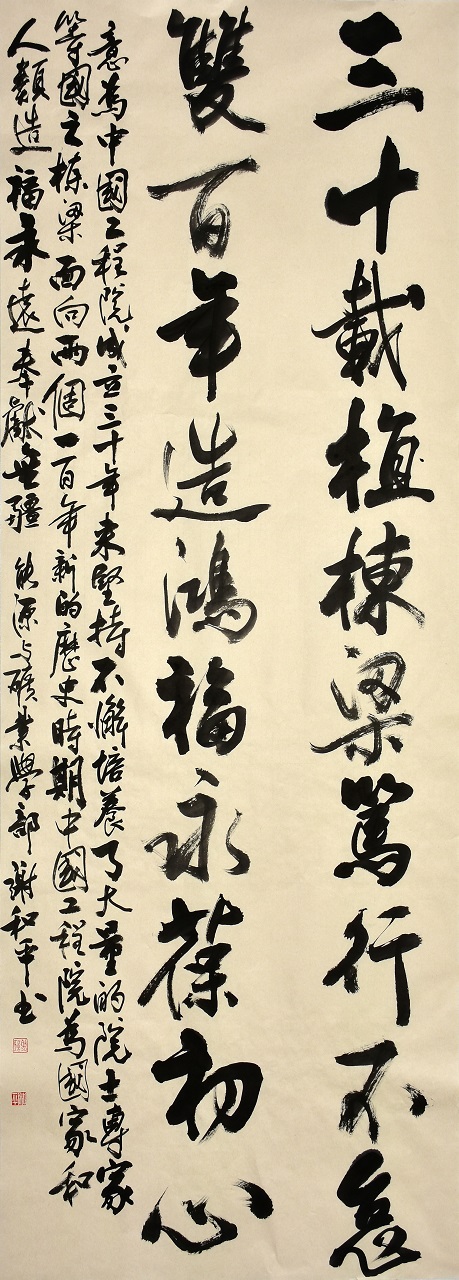 三十載植棟梁篤行不怠
雙百年造鴻福永葆初心
意為中國工程院成立三十年来堅持不懈培養了大量的院士專家
等國之栋梁面向兩個一百年新的歷史時期中國工程院為國家和
人類造福永遠奉獻無疆 能源与礦業學部 謝和平书